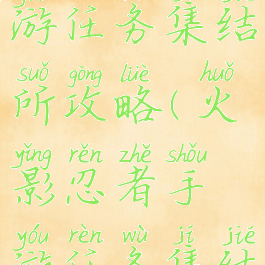 游任务集结
suǒ gōng lüè huǒ
所攻略(火
yǐng rěn zhě shǒu
影忍者手
yóu rèn wù jí jié
游任务集结